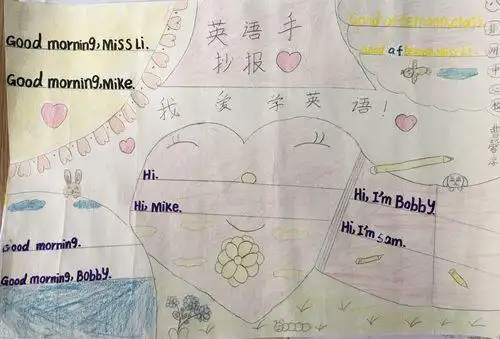 英语手
抄报
我爱学英语!
Good morning, Miss Li.
Good morning, Mike.
Good afternoon, class.
Good af
Hi.
Hi, Mike.
Hi, I'm Bobby.
Hi, I'm Sam.
Good morning.
Good morning, Bobby.